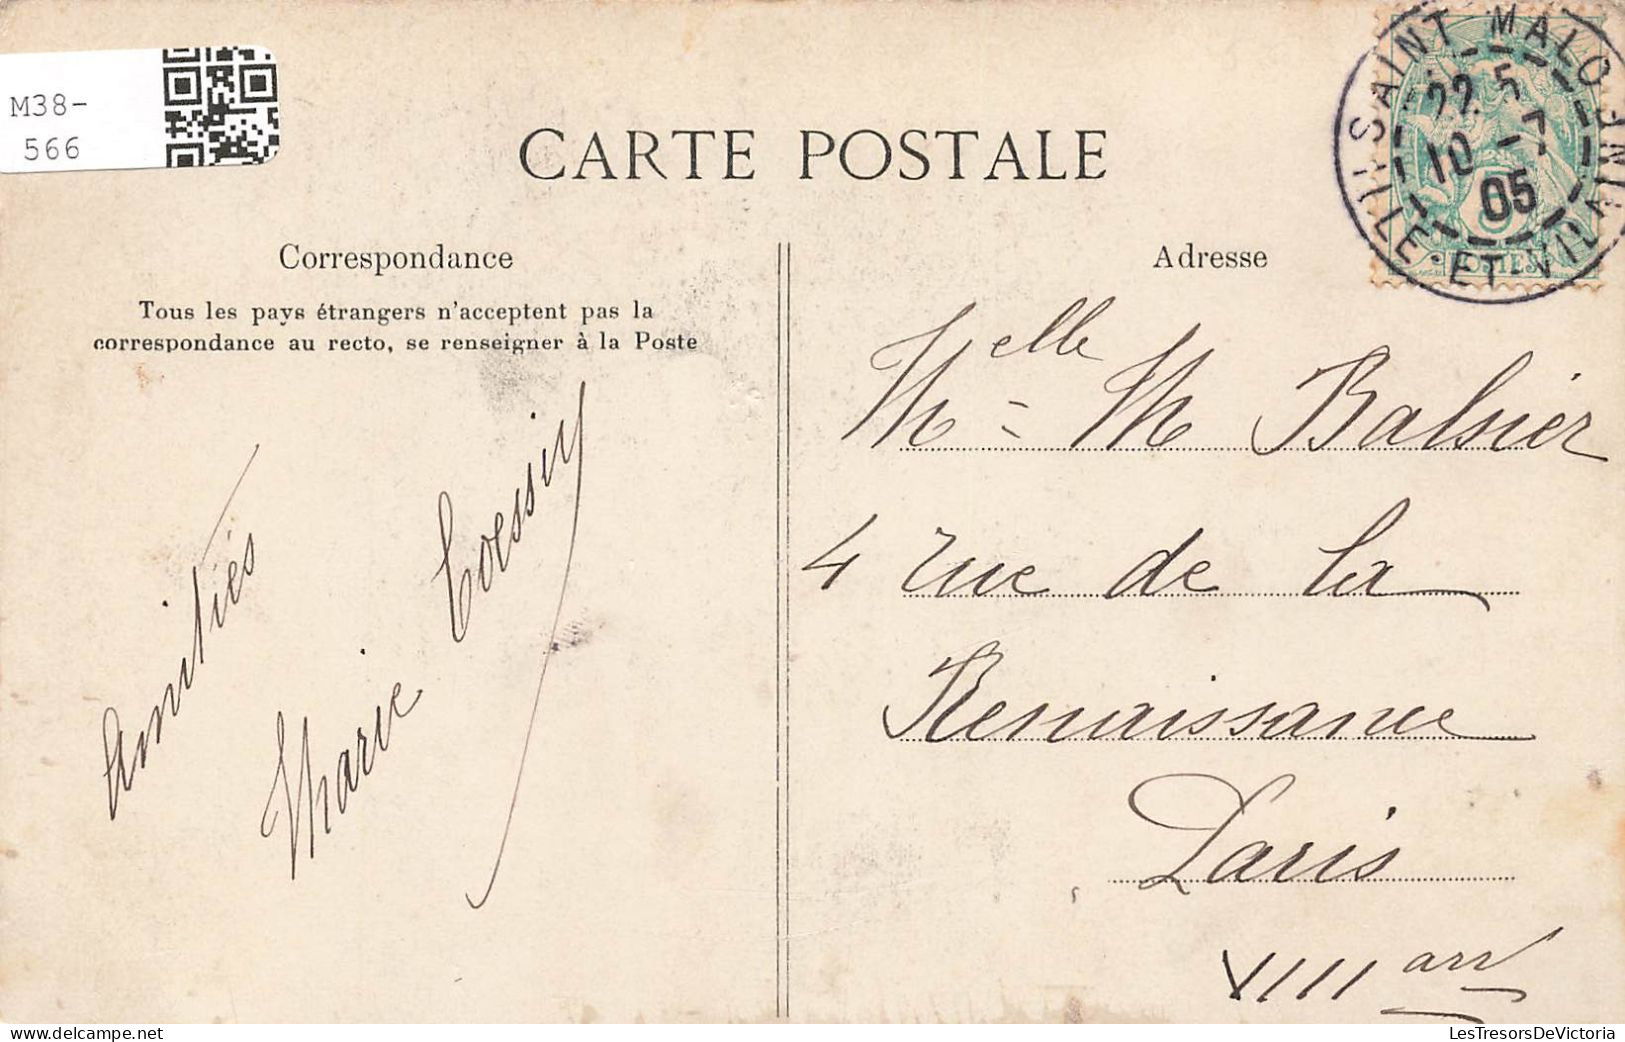 M38-
566
CARTE POSTALE
SAINT-MALO
ILLE-ET-VILAINE
22 5
10 -7
05
POSTES
Correspondance
Adresse
Tous les pays étrangers n'acceptent pas la
correspondance au recto, se renseigner à la Poste
Amitiés
Marie
Melle M Balsier
4 rue de la
Renaissance
Paris
VIII arr
LesTresorsDeVictoria